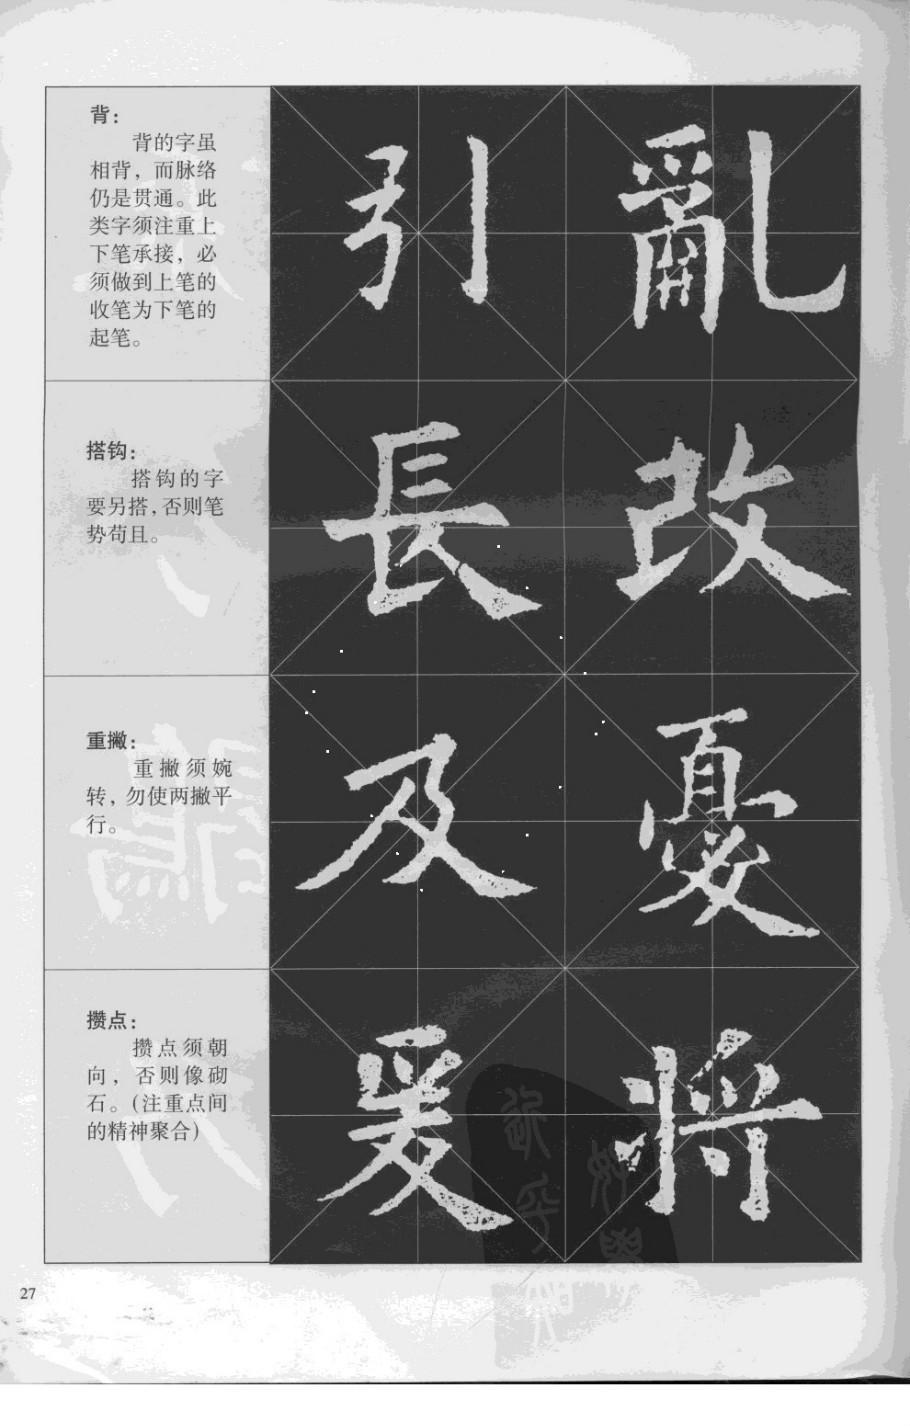 背：
背的字虽
相背，而脉络
仍是贯通。此
类字须注重上
下笔承接，必
须做到上笔的
收笔为下笔的
起笔。
引 亂
搭钩：
搭钩的字
要另搭，否则笔
势苟且。
長 改
重撇：
重撇须婉
转，勿使两撇平
行。
及 憂
攒点：
攒点须朝
向，否则像砌
石。（注重点间
的精神聚合）
爰 将
27